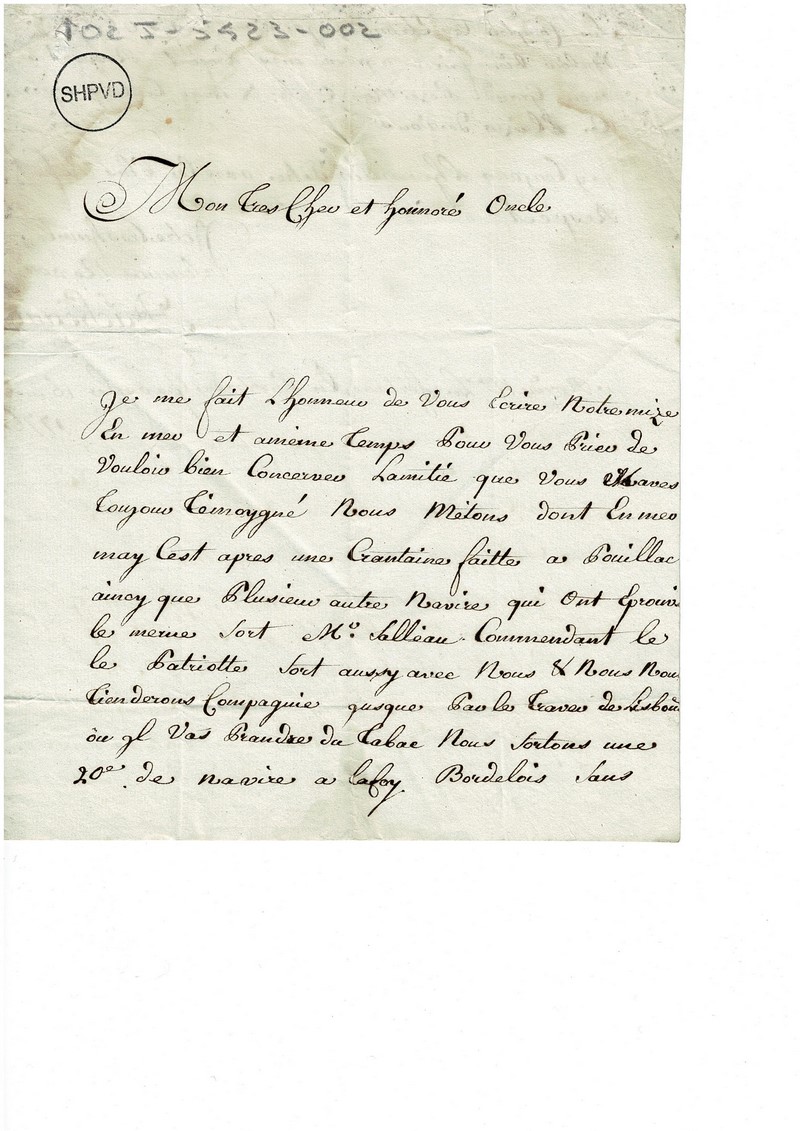 102 J-5423-002
SHPVD
Mon Tres Cher et honnoré Oncle
Je me fait Lhonneur de Vous Ecrire Notre mize
En mer et amême Temps Pour Vous Prier de
Vouloir bien Concerver Lamitié que Vous Maves
Toujour Témoygné Nous Métons dont En mer
may Cest apres une Crantaine faitte a Pouillac
aincy que Plusieur autre Navire qui Ont Eprouv
le meme Sort Mr. Salleau Commendant le
le Patriotte Sort aussy avec Nous & Nous Nou
Tienderons Compagnie qusque Par le Traver de Lisbon
òu yl Vas Prandre du Tabac Nous Sortons une
20e. de navire a lafoy Bordelois Sans